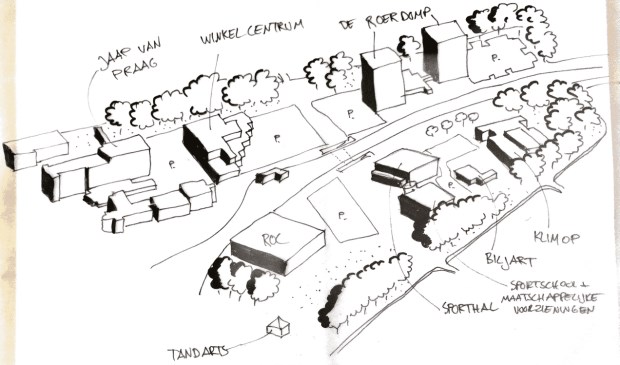 JAAP VAN
PRAAG
WINKELCENTRUM
DE ROERDOMP
P.
P.
P.
P.
P.
P.
ROC
KLIMOP
BILJART
SPORTSCHOOL +
MAATSCHAPPELIJKE
VOORZIENINGEN
SPORTHAL
TANDARTS